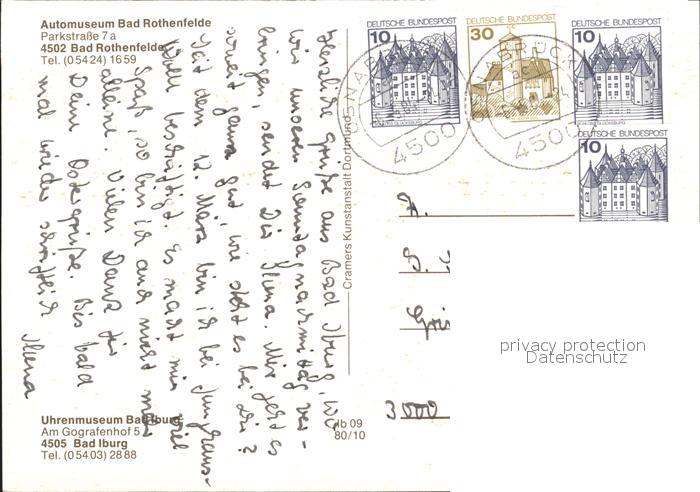 Automuseum Bad Rothenfelde
Parkstraße 7a
4502 Bad Rothenfelde
Tel. (05424) 1659
Herzliche Grüße aus Bad Iburg, wo
wir unseren Sonntagnachmittag ver-
bringen, sendet Dir Ilona. Mir geht es
soweit ganz gut, wie steht es bei Dir?
Seit dem 12. März bin ich bei
voll beschäftigt. Es macht mir viel
Spaß, so bin ich auch nicht mehr
alleine. Vielen Dank für
Deine Ostergrüße. Bis bald
mal wieder schriftlich Ilona
Uhrenmuseum Bad Iburg
Am Gografenhof 5
4505 Bad Iburg
Tel. (05403) 2888
Cramers Kunstanstalt Dortmund
Ib 09
80/10
DEUTSCHE BUNDESPOST
10
DEUTSCHE BUNDESPOST
30
DEUTSCHE BUNDESPOST
10
DEUTSCHE BUNDESPOST
10
OSNABRÜCK
4500
4500
3000
privacy protection
Datenschutz